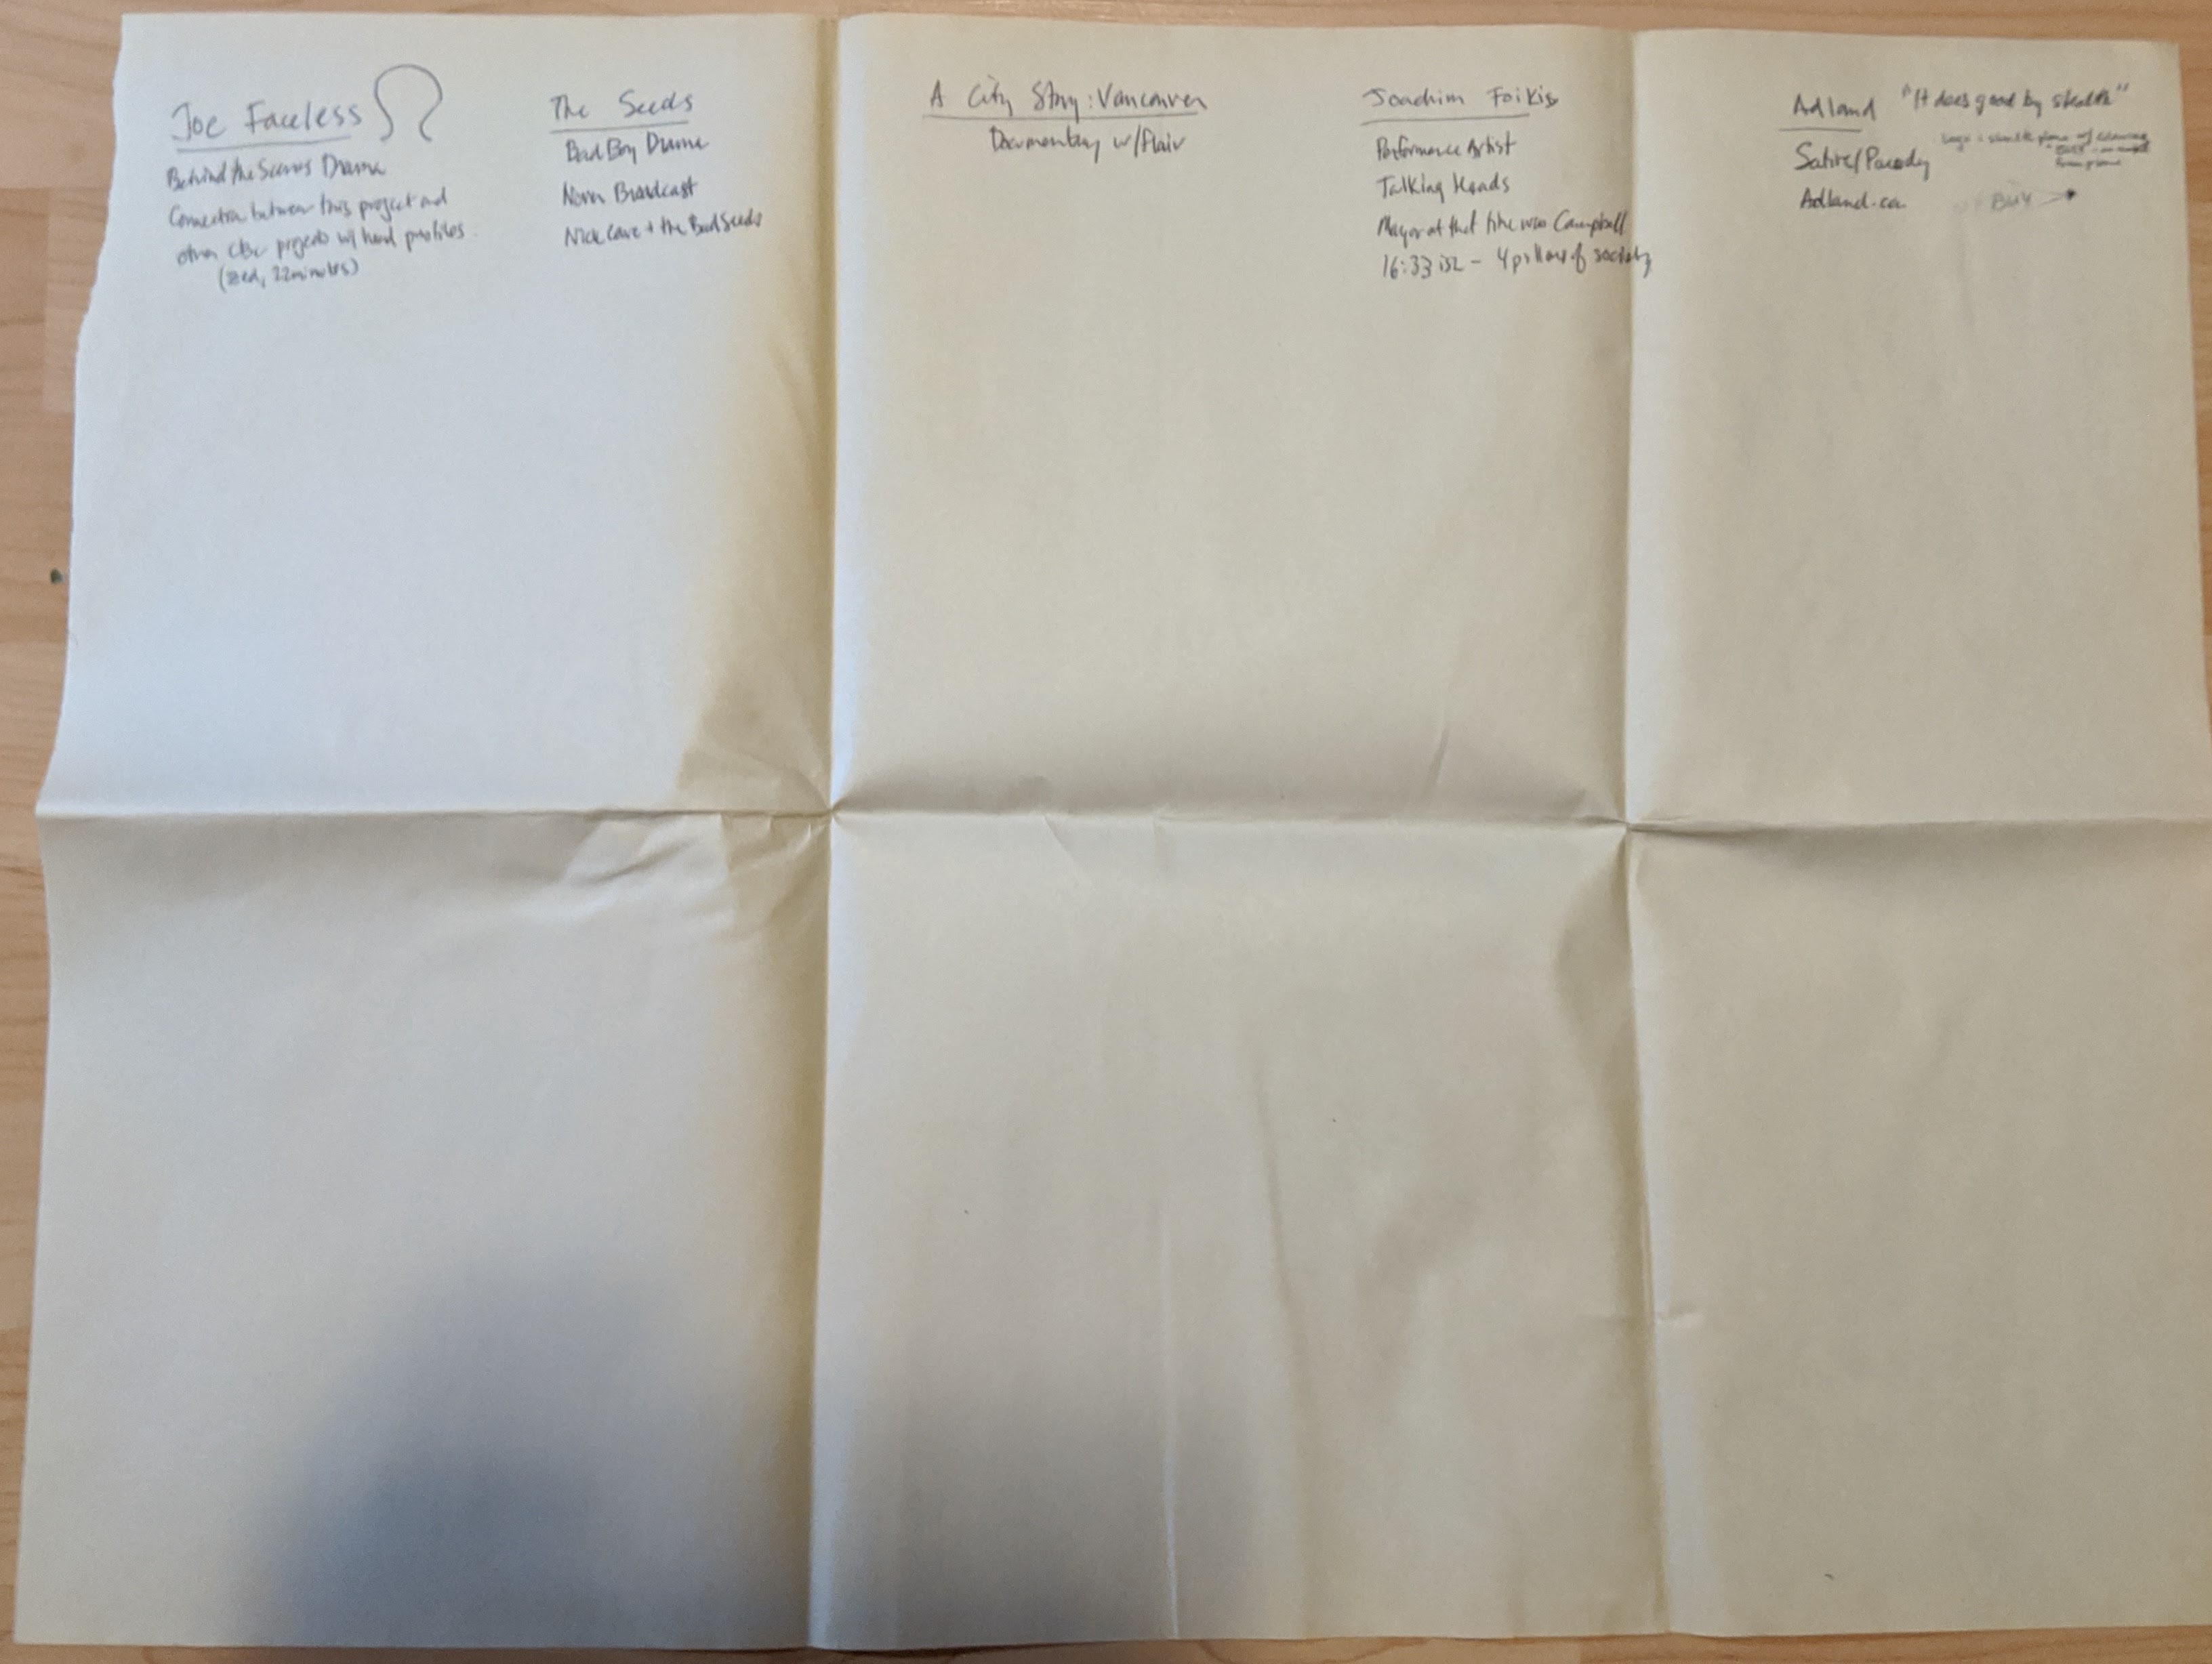 Joe Faceless
Behind the Scenes Drama
Connection between this project and
other CBC projects w/ hand profiles.
(Zed, 22minutes)
The Seeds
Bad Boy Drama
Norm Broadcast
Nick Cave + the Bad Seeds
A City Story: Vancouver
Documentary w/flair
Joachim Foikis
Performance Artist
Talking Heads
Mayor at that time was Campbell
16:33 isz - 4 pillars of society
Adland "It does good by stealth"
Satire/Parody
Adland.ca
Logo = stealth plane w/
BUY